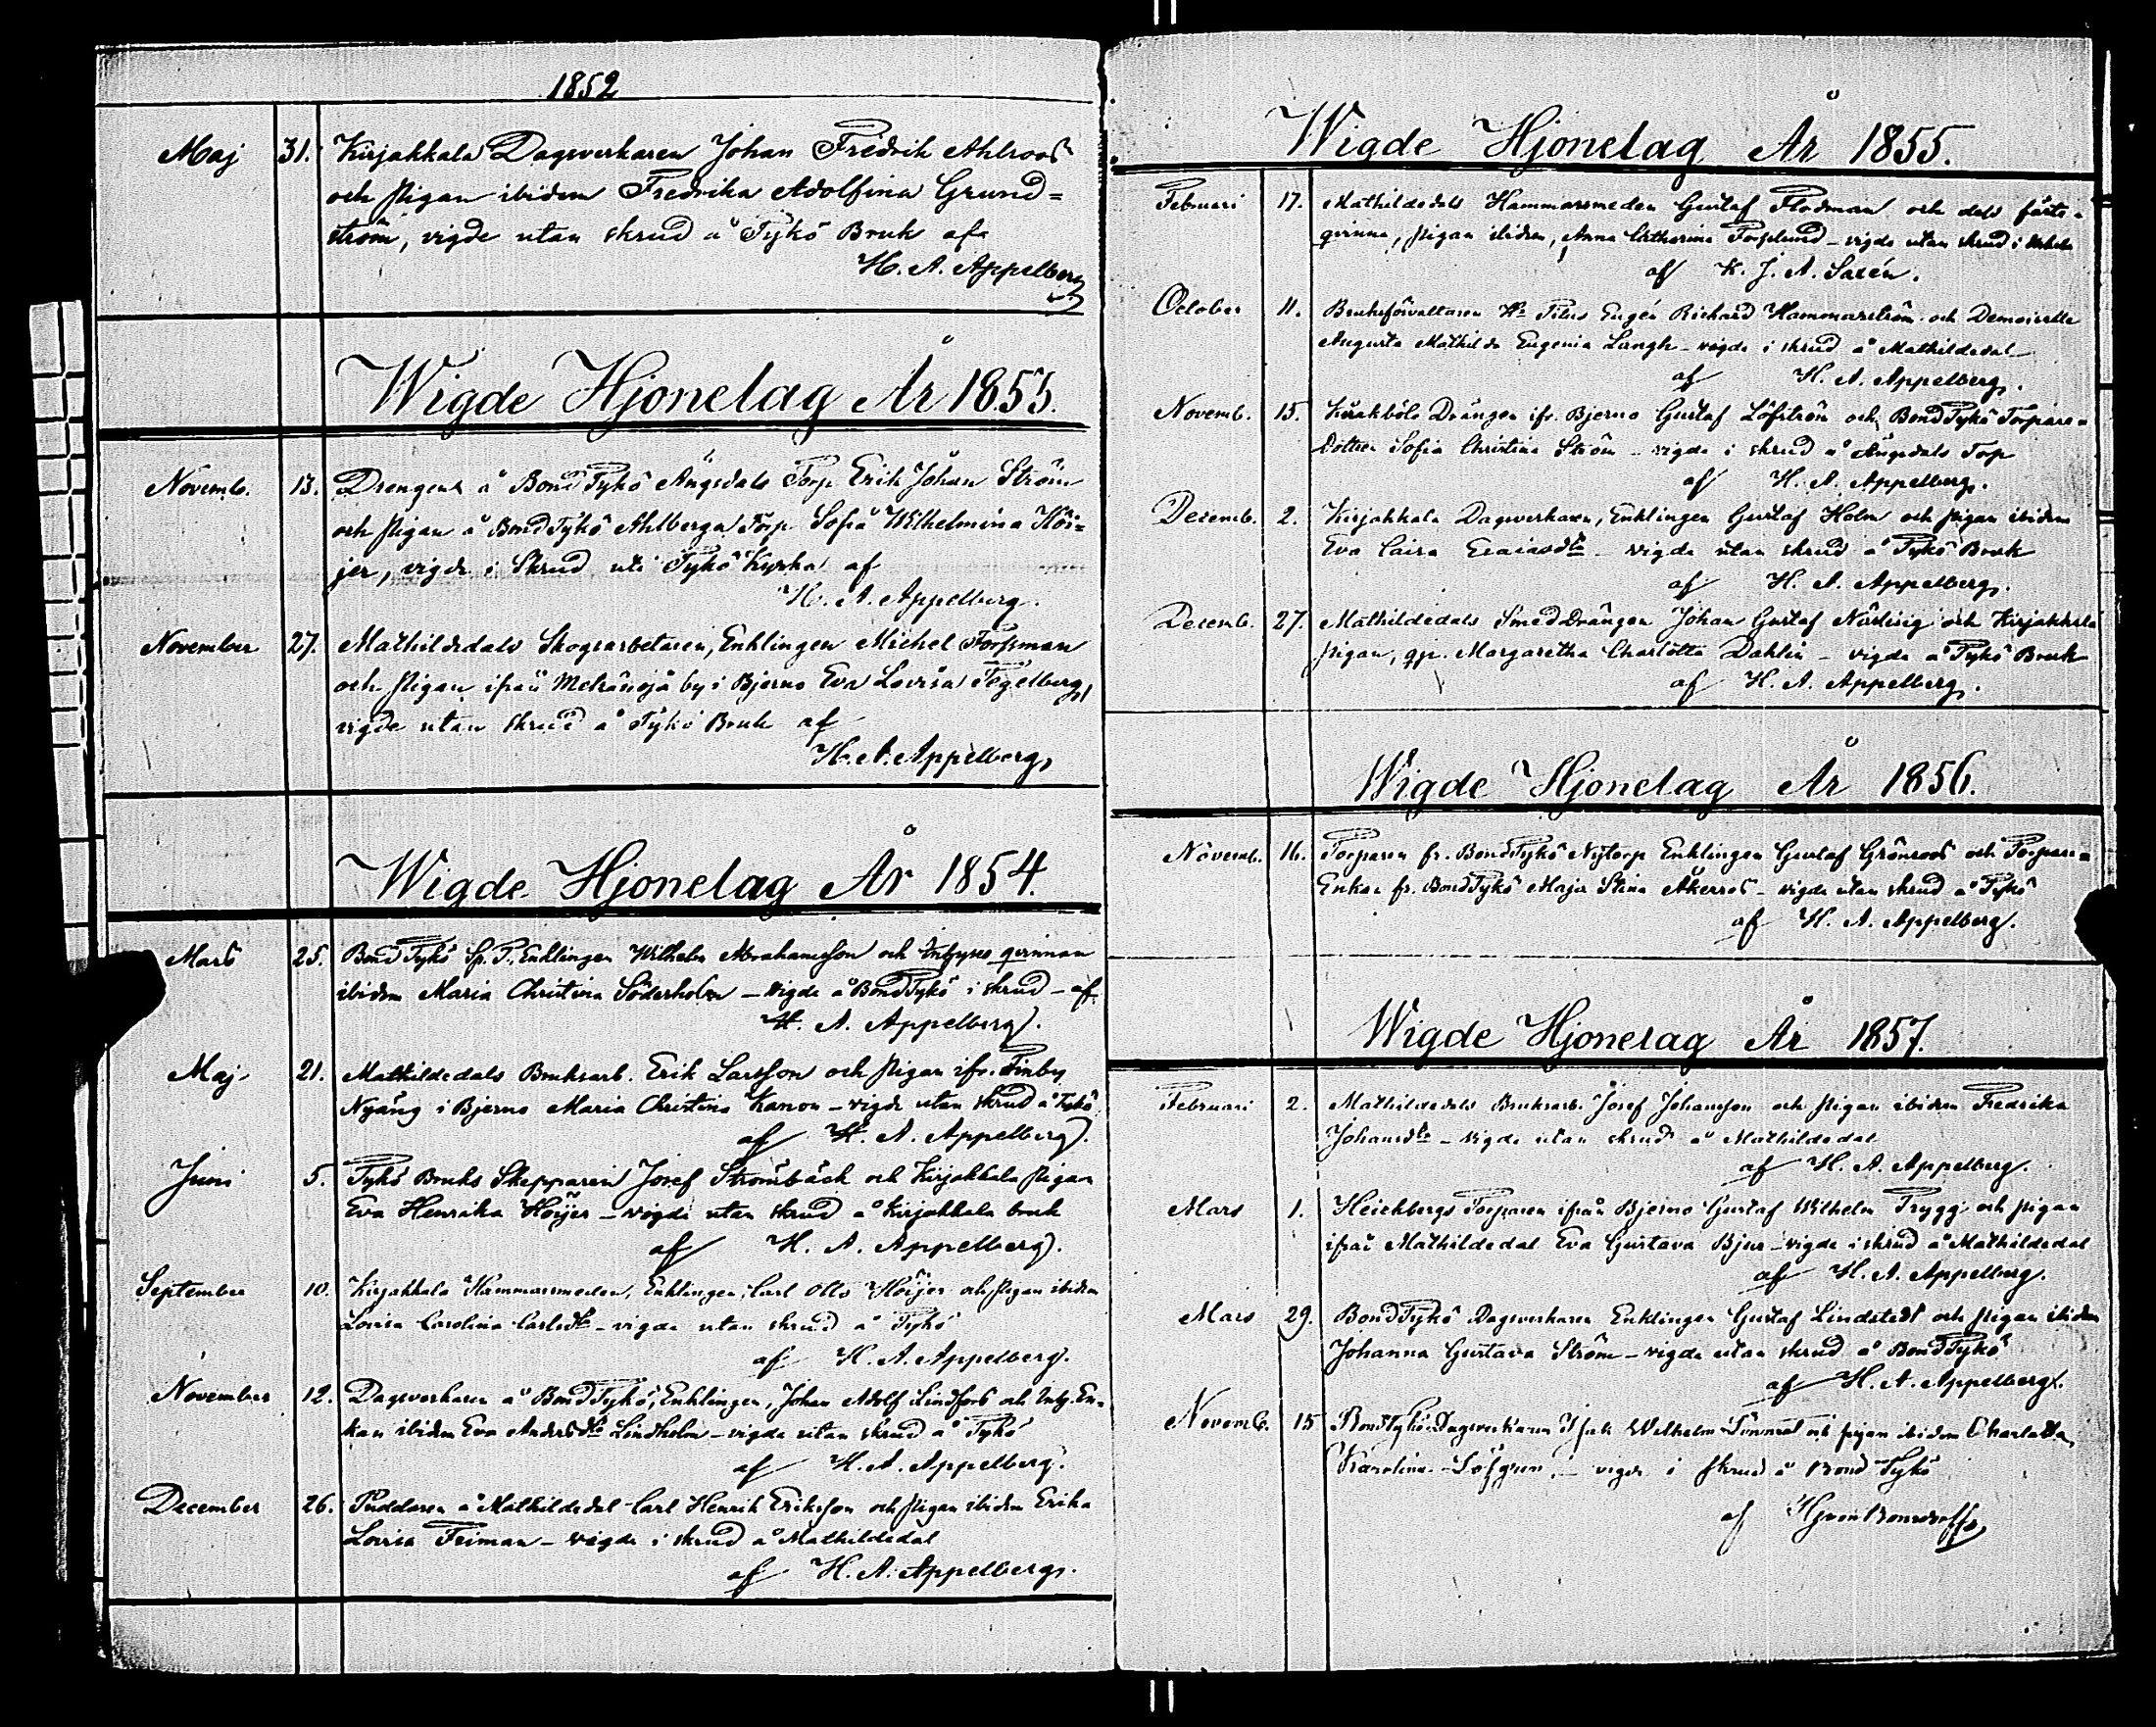 1852
Maj 31. Kirjakkala Dagsverkaren Johan Fredrik Ahlroos
och Pigan ibidem Fredrika Adolfina Grund=
ström, vigde utan skrud å Tykö Bruk af
H. A. Appelberg
Wigde Hjonelag År 1853.
Novemb. 13. Drengen å BondTykö Ängsdals Torp Erik Johan Ström
och Pigan å BondTykö Ahlberga Torp Sofia Wilhelmina Höi=
jer, vigde i Skrud uti Tykö Kyrka af
H. A. Appelberg.
November 27. Mathildedals Skogsarbetaren, Enklingen Michel Forsman
och Pigan ifrån by i Bjerno Eva Lovisa Tegelberg,
vigde utan skrud å Tykö Bruk af
H. A. Appelberg,
Wigde Hjonelag År 1854.
Mars 25. BondTykö Sp. T. Enklingen Wilhelm Abrahamsson och Inhyses qvinnan
ibidem Maria Christina Söderholm – vigde å BondTykö i skrud – af
H. A. Appelberg.
Maj 21. Mathildedals Bruksarb. Erik Larsson och Pigan ifr. Finby
Nyäng i Bjerno Maria Christina Kanon – vigde utan skrud å Tykö
af H. A. Appelberg.
Juni 5. Tykö Bruks Skepparen Josef Strömbäck och Kirjakkala Pigan
Eva Henrika Höijer – vigde utan skrud å Kirjakkala bruk
af H. A. Appelberg.
September 10. Kirjakkala Hammarsmeden, Enklingen, Carl Otto Höijer och Pigan ibidem
Lovisa Carolina Carlsdtr – vigde utan skrud å Tykö
af H. A. Appelberg.
November 12. Dagsverkaren å BondTykö, Enklingen, Johan Adolf Lindfors och Inhy. En=
kan ibidem Eva Andersdtr Lindholm – vigde utan skrud å Tykö
af H. A. Appelberg.
December 26. Puddaren å Mathildedal Carl Henrik Eriksson och Pigan ibidem Erika
Lovisa Feiman – vigde i skrud å Mathildedal
af H. A. Appelberg.
Wigde Hjonelag År 1855.
Februari 17. Mathildedals Hammarsmeden Gustaf Flodman och dess fäste=
qvinna, Pigan ibidem, Anna Catharina Forslund – vigde utan skrud i
af K. J. A. Saxén.
October 11. Bruksförvaltaren Hr Titus Eugén Richard Hammarström och Demoiselle
Augusta Mathilda Eugenia Langh – vigde i skrud å Mathildedal
af H. A. Appelberg.
Novemb. 15. Drängen ifr. Bjerno Gustaf Löfström och BondTykö Torpare=
dotter Sofia Christina Ström – vigde i skrud å Ängsdals Torp
af H. A. Appelberg.
Decemb. 2. Kirjakkala Dagsverkaren, Enklingen Gustaf Holm och Pigan ibidem
Eva Caisa Esaiasdtr – vigde utan skrud å Tykö Bruk
af H. A. Appelberg.
Decemb. 27. Mathildedals SmedDrängen Johan Gustaf Nörling och Kirjakkala
Pigan, qp. Margaretha Charlotta Dahlin – vigde å Tykö Bruk
af H. A. Appelberg.
Wigde Hjonelag År 1856.
Novemb. 16. Torparen fr. BondTykö Nytorp Enklingen Gustaf Grönroos och Torpare=
Enkan fr. BondTykö Maja Stina Åkerros – vigde utan skrud å Tykö
af H. A. Appelberg.
Wigde Hjonelag År 1857.
Februari 2. Mathildedals Bruksarb. Josef Johansson och Pigan ibidem Fredrika
Johansdtr – vigde utan skrud å Mathildedal
af H. A. Appelberg.
Mars 1. Heickbergs Torparen ifrån Bjerno Gustaf Wilhelm Trygg och Pigan
ifrån Mathildedal Eva Gustava Bjur – vigde i skrud å Mathildedal
af H. A. Appelberg.
Mars 29. BondTykö Dagsverkaren Enklingen Gustaf Lindstedt och Pigan ibidem
Johanna Gustava Ström – vigde utan skrud å BondTykö
af H. A. Appelberg.
Novemb. 15 BondTykö Dagsverkaren Isak Wilhelm och pigan ibidem Charlotta
Karolina Löfgren – vigde i skrud å Bond Tykö
af HJvonBonsdorff